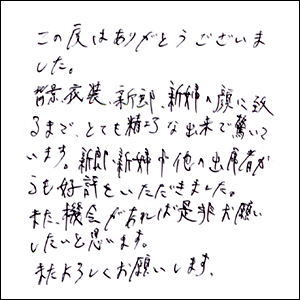 この度はありがとうございま
した。
背景、衣装、新郎、新婦の顔に致
るまで、とても精巧な出来で驚いて
います。新郎、新婦や他の出席者か
らも好評をいただきました。
また、機会があれば是非お願い
したいと思います。
またよろしくお願いします。